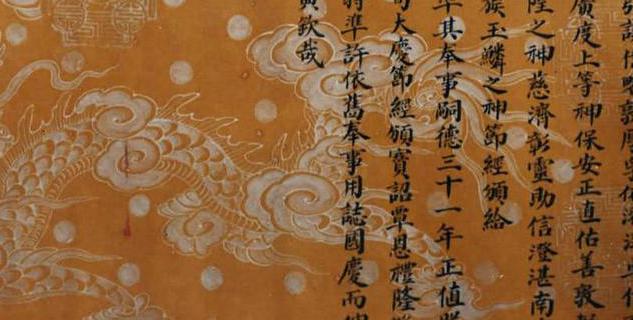 廣度上等神保安正直佑善敦
之神慈濟彰靈助信澄湛南
族玉鱗之神節經頒給
年其奉事嗣德三十一年正值
大慶節經頒寶詔覃恩禮隆
準許依舊奉事用誌國慶而
欽哉